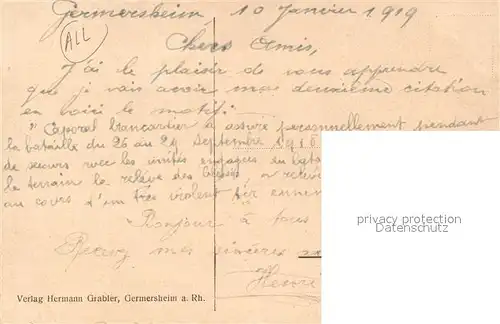 Germersheim 10 Janvier 1919
ALL
Chers Amis,
J'ai le plaisir de vous apprendre
que je vais avoir ma deuxième citation
en voici le motif:
" Caporal brancardier a assuré personnellement pendant
la bataille du 26 au 29 septembre 1918
de secours avec les unités engagées du
le terrain la relève des blessés a relevé
au cours d'un très violent tir ennemi
Bonjour à tous
Recevez mes sincères
Henri
privacy protection
Verlag Hermann Grabler, Germersheim a. Rh.